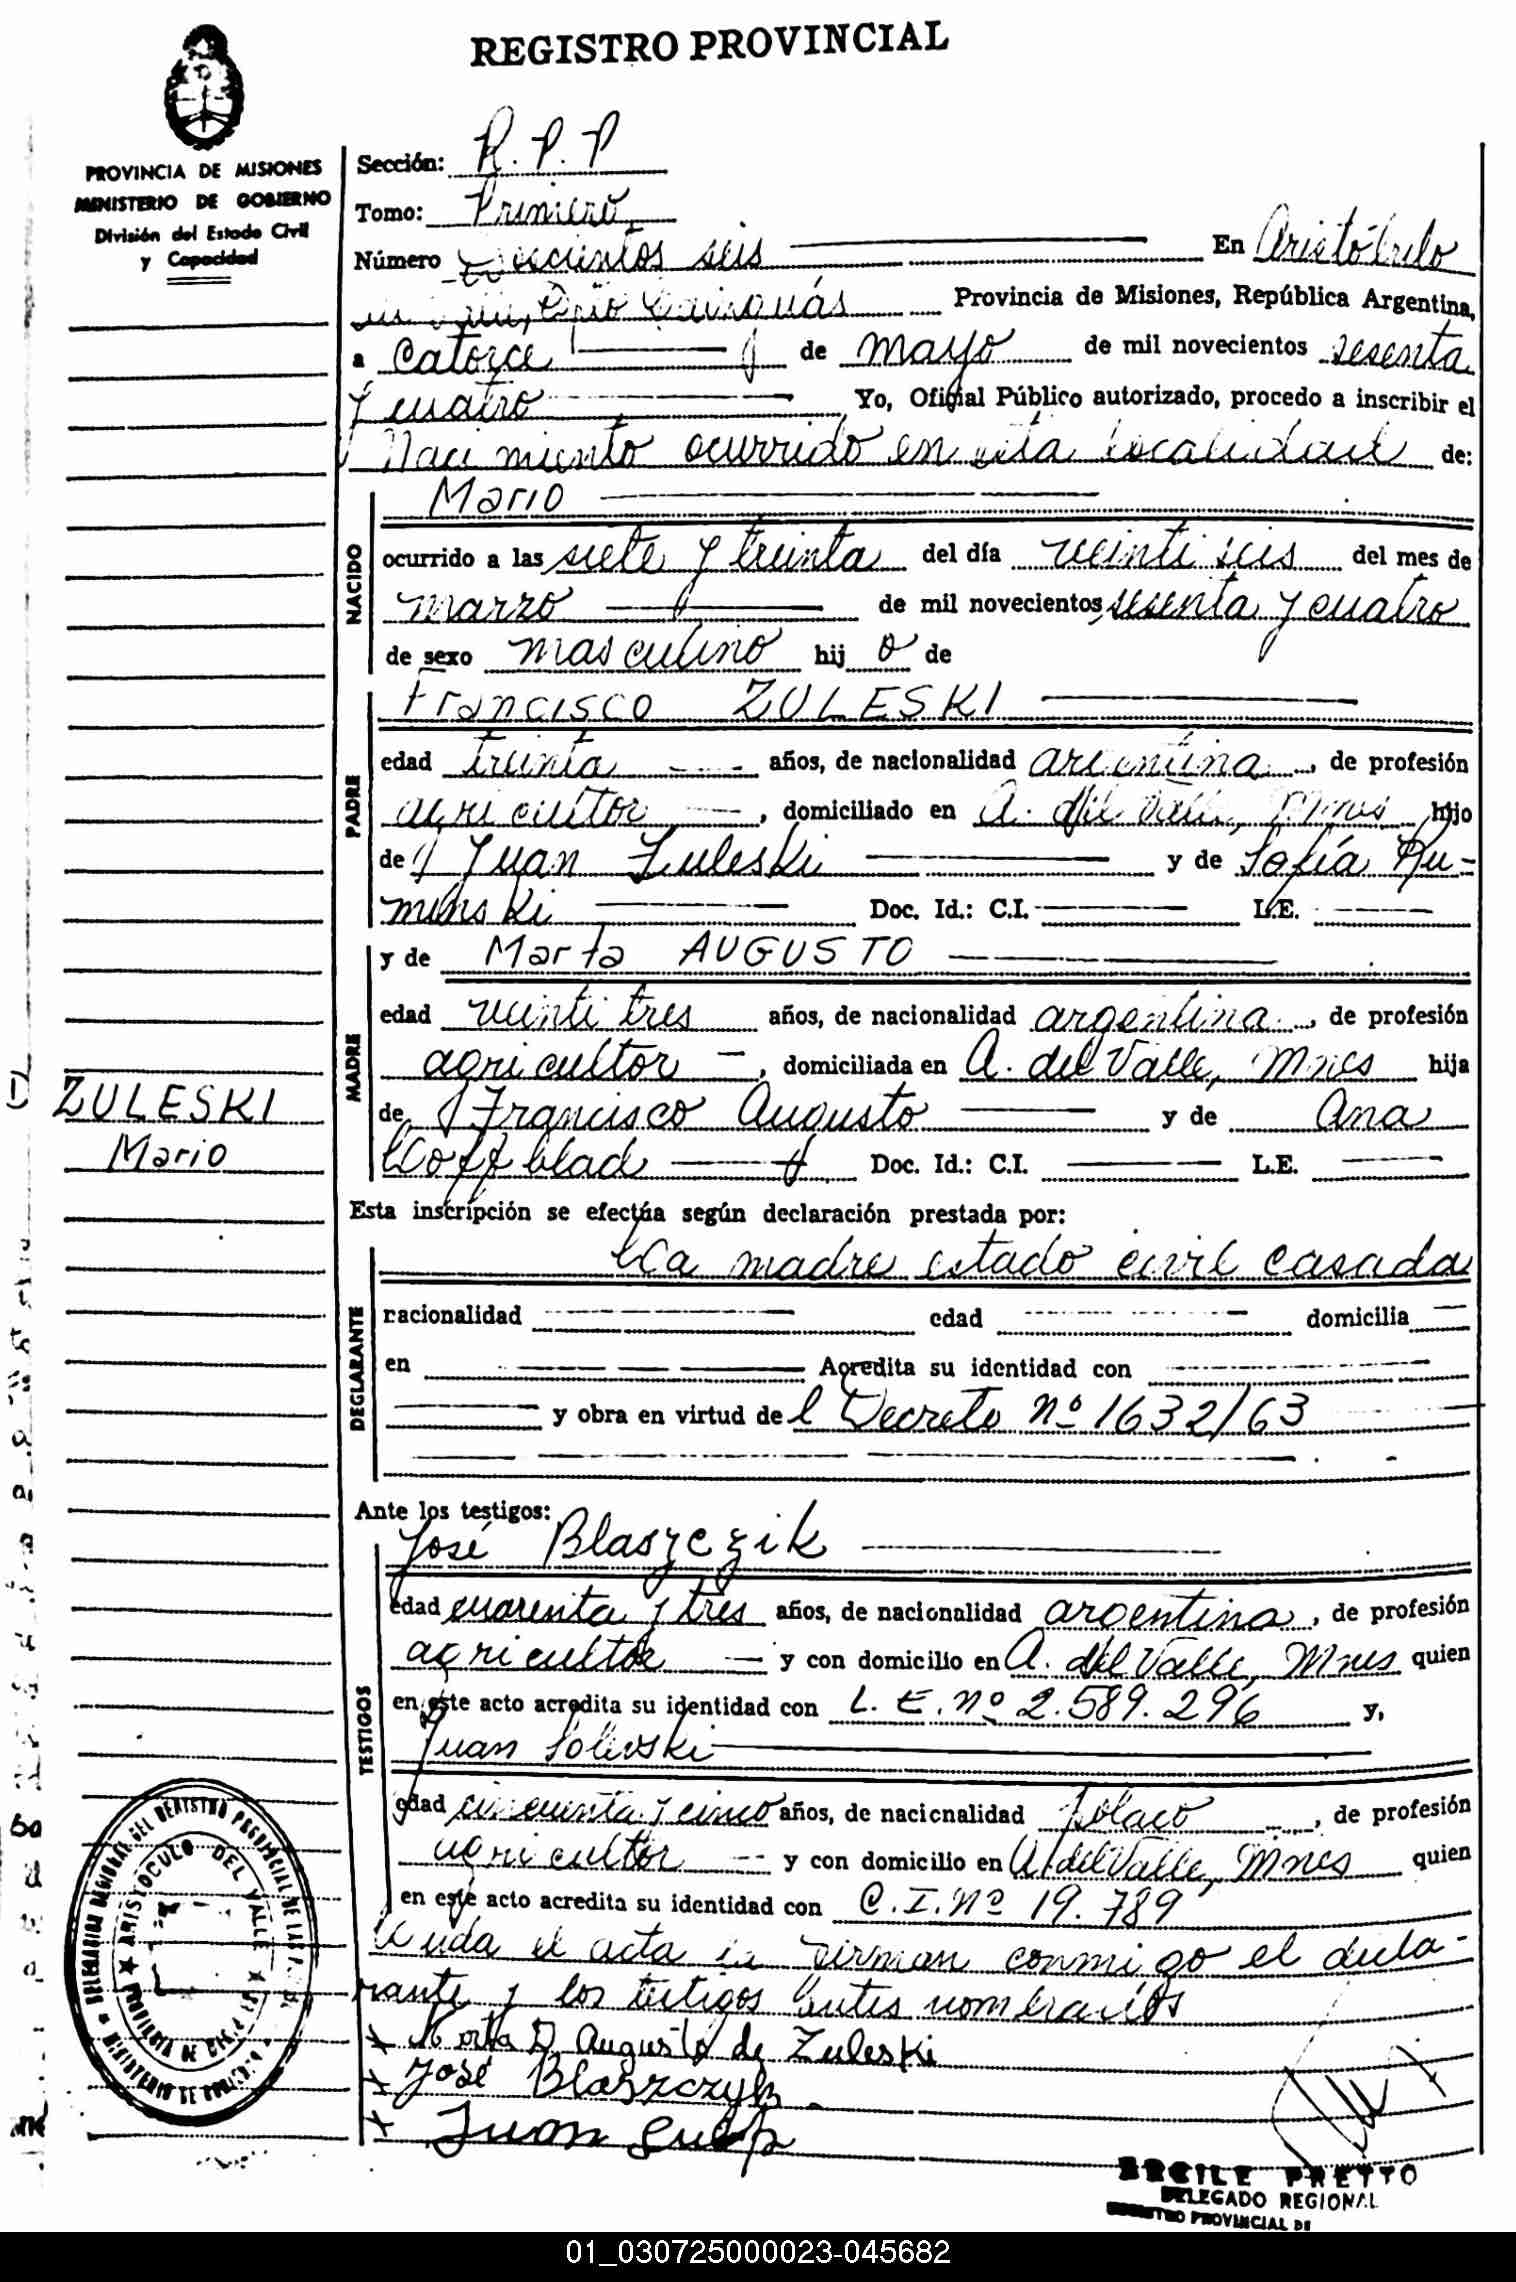 REGISTRO PROVINCIAL
PROVINCIA DE MISIONES
MINISTERIO DE GOBIERNO
División del Estado Civil
y Capacidad
Sección: R.P.P
Tomo: Primero
Número Doscientos seis En Aristóbulo
del Valle, Dpto Cainguás Provincia de Misiones, República Argentina,
a Catorce de mayo de mil novecientos sesenta
y cuatro Yo, Oficial Público autorizado, procedo a inscribir el
Nacimiento ocurrido en esta localidad de:
NACIDO
Mario
ocurrido a las siete y treinta del día veintiseis del mes de
marzo de mil novecientos sesenta y cuatro
de sexo masculino hij o de
PADRE
Francisco ZULESKI
edad treinta años, de nacionalidad argentina, de profesión
agricultor, domiciliado en A. del Valle, Mnes hijo
de Juan Zuleski y de Sofía Ru-
minski Doc. Id.: C.I. L.E.
MADRE
y de Marta AUGUSTO
edad veintitres años, de nacionalidad argentina, de profesión
agricultor, domiciliada en A. del Valle, Mnes hija
de Francisco Augusto y de Ana
Koffblad Doc. Id.: C.I. L.E.
ZULESKI
Mario
Esta inscripción se efectúa según declaración prestada por:
DECLARANTE
La madre estado civil casada
nacionalidad edad domicilia
en Acredita su identidad con
y obra en virtud de l Decreto nº 1632/63
Ante los testigos:
TESTIGOS
José Blaszczik
edad cuarenta y tres años, de nacionalidad argentina, de profesión
agricultor y con domicilio en A. del Valle, Mnes quien
en este acto acredita su identidad con L.E. nº 2.589.296 y,
Juan Solevski
edad cincuenta y cinco años, de nacionalidad polaco, de profesión
agricultor y con domicilio en A. del Valle, Mnes quien
en este acto acredita su identidad con C.I. Nº 19.789
Leida el acta la firman conmigo el decla-
rante y los testigos antes nombrados
x Marta D. Augusto de Zuleski
x José Blaszczyk
x Juan
DELEGACION REGIONAL DEL REGISTRO PROVINCIAL DE LAS
MINISTERIO DE GOBIERNO
ARISTOCULO DEL VALLE
PROVINCIA DE
ERCILE PRETTO
DELEGADO REGIONAL
REGISTRO PROVINCIAL DE
01_030725000023-045682